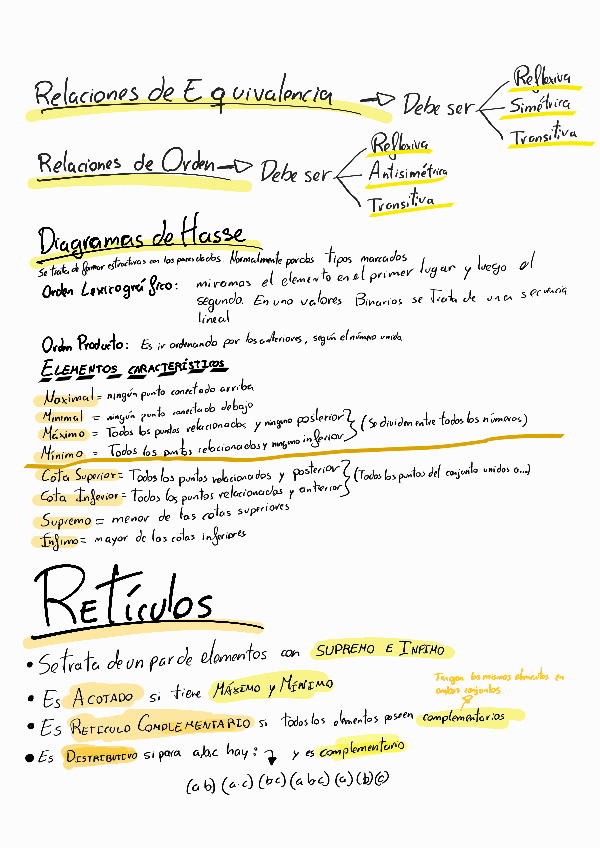 Relaciones de Equivalencia → Debe ser
Reflexiva
Simétrica
Transitiva
Relaciones de Orden → Debe ser
Reflexiva
Antisimétrica
Transitiva
Diagramas de Hasse
Se trata de formar estructuras con los pares dados Normalmente por dos tipos marcados
Orden Lexicográfico: miramos el elemento en el primer lugar y luego el
segundo. En uno valores Binarios se trata de una secuencia
lineal
Orden Producto: Es ir ordenando por los anteriores, según el número unido
ELEMENTOS CARACTERÍSTICOS
Maximal = ningún punto conectado arriba
Minimal = ningún punto conectado debajo
Máximo = Todos los puntos relacionados y ninguno posterior
Mínimo = Todos los puntos relacionados y ninguno inferior
(Se dividen entre todos los números)
Cota Superior = Todos los puntos relacionados y posterior
Cota Inferior = Todos los puntos relacionados y anterior
(Todos los puntos del conjunto unidos a...)
Supremo = menor de las cotas superiores
Ínfimo = mayor de las cotas inferiores
Retículos
• Se trata de un par de elementos con SUPREMO E INFIMO
• Es ACOTADO si tiene MÁXIMO Y MÍNIMO
Tengan los mismos elementos en
ambos conjuntos
• Es RETICULO COMPLEMENTARIO si todos los elementos poseen complementarios
• Es DISTRIBUTIVO si para abc hay: y es complementario
(ab) (ac) (bc) (abc) (a) (b) (c)